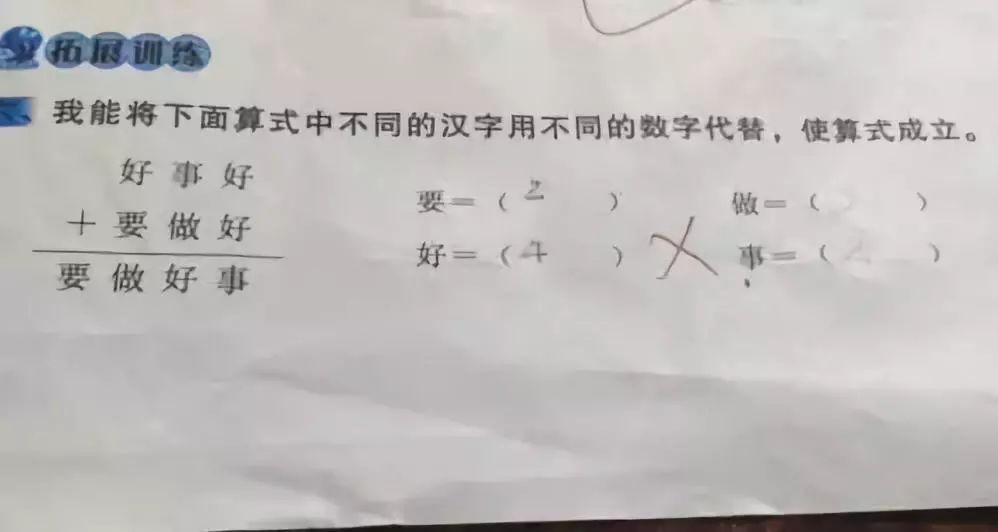 拓展训练
我能将下面算式中不同的汉字用不同的数字代替，使算式成立。
好事好
+要做好
要做好事
要=（2） 做=（ ）
好=（4） 事=（ ）